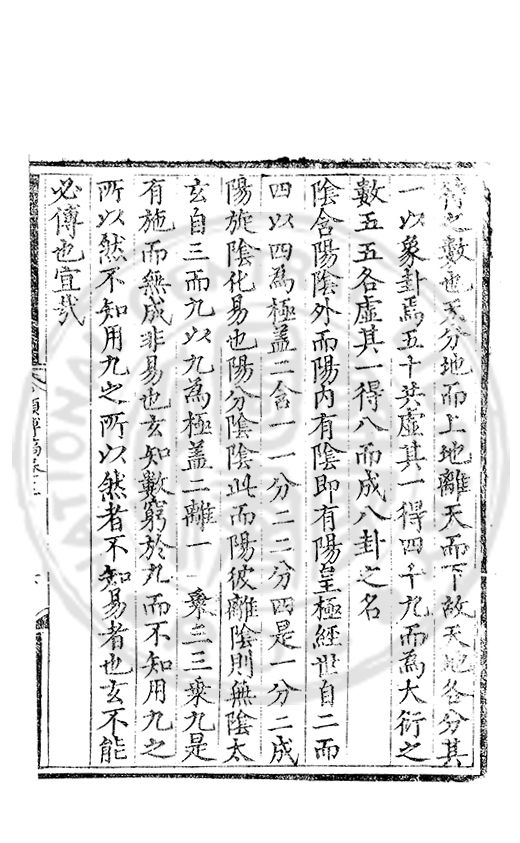 符之數也天分地而上地離天而下故天地各分其
一以象卦焉五十共虛其一得四十九而為大衍之
數五五各虛其一得八而成八卦之名
陰含陽陰外而陽內有陰即有陽皇極經世自二而
四以四為極蓋二含一一分二二分四是一分二成
陽旋陰化易也陽分陰陰此而陽彼離陰則無陰太
玄自三而九以九為極蓋二離一一乘三三乘九是
有施而無成非易也玄知數窮於九而不知用九之
所以然不知用九之所以然者不知易者也玄不能
必傳也宜哉
NATIONAL CENTRAL